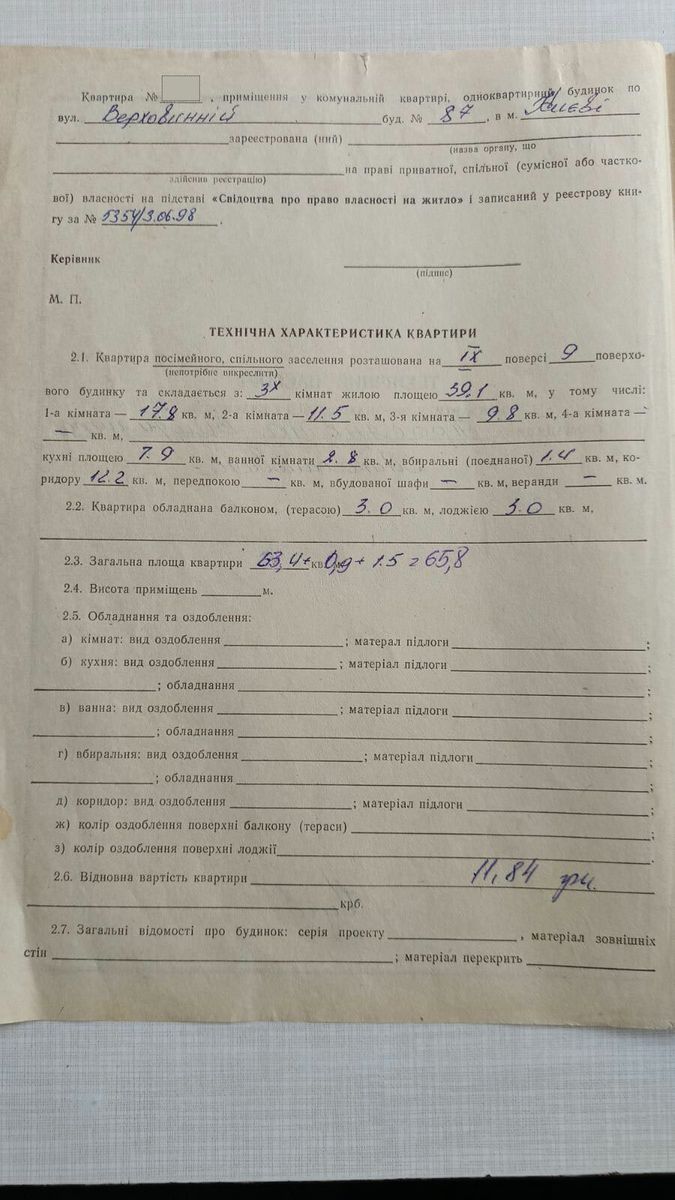 Квартира № , приміщення у комунальній квартирі, одноквартирний будинок по
вул. Верховинній буд. № 87, в м. Києві
зареестрована (ний)
(назва органу, що
на праві приватної, спільної (сумісної або частко-
здійснив реєстрацію)
вої) власності на підставі «Свідоцтва про право власності на житло» і записаний у реєстрову кни-
гу за № 5354/3.06.98.
Керівник
(підпис)
М. П.
ТЕХНІЧНА ХАРАКТЕРИСТИКА КВАРТИРИ
2.1. Квартира посімейного, спільного заселення розташована на IX поверсі 9 поверхо-
(непотрібне викреслити)
вого будинку та складається з: 3х кімнат жилою площею 39.1 кв. м, у тому числі:
1-а кімната — 17.8 кв. м, 2-а кімната — 11.5 кв. м, 3-я кімната — 9.8 кв. м, 4-а кімната —
— кв. м,
кухні площею 7.9 кв. м, ванної кімнати 2.8 кв. м, вбиральні (поєднаної) 1.4 кв. м, ко-
ридору 12.2 кв. м, передпокою — кв. м, вбудованої шафи — кв. м, веранди — кв. м.
2.2. Квартира обладнана балконом, (терасою) 3.0 кв. м, лоджією 3.0 кв. м,
2.3. Загальна площа квартири 63,4 + 0,9 + 1.5 = 65,8 кв. м.
2.4. Висота приміщень м.
2.5. Обладнання та оздоблення:
а) кімнат: вид оздоблення ; матерал підлоги ;
б) кухня: вид оздоблення ; матеріал підлоги ;
; обладнання ;
в) ванна: вид оздоблення ; матеріал підлоги ;
; обладнання ;
г) вбиральня: вид оздоблення ; матеріал підлоги ;
; обладнання ;
д) коридор: вид оздоблення ; матеріал підлоги ;
ж) колір оздоблення поверхні балкону (тераси) ;
з) колір оздоблення поверхні лоджії .
2.6. Відновна вартість квартири 11,84 грн.
крб.
2.7. Загальні відомості про будинок: серія проекту , матеріал зовнішніх
стін ; матеріал перекрить